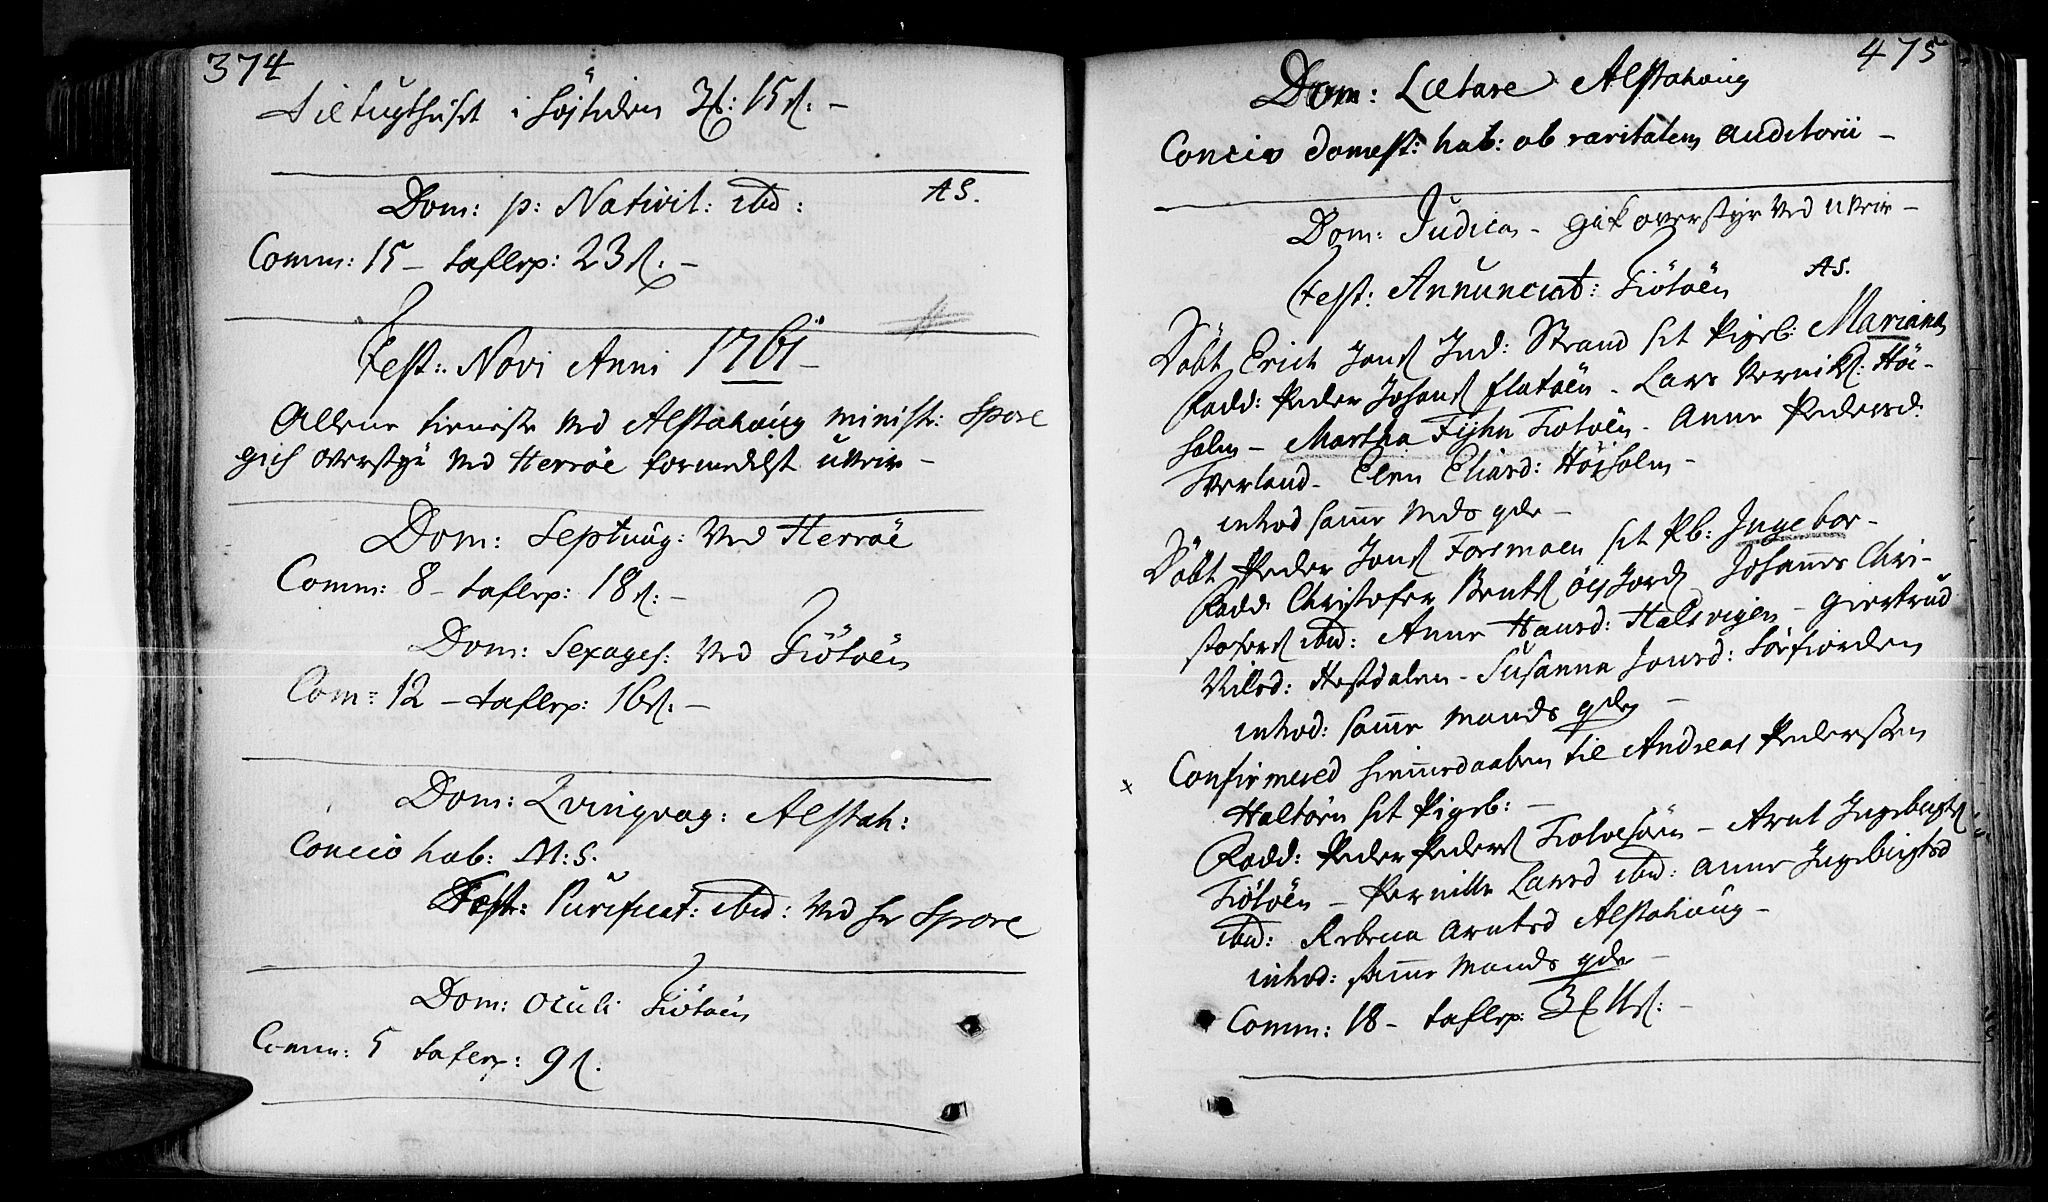 374
til tugthuset i höjtiden 3ß: 15ß: –
Dom: p: Nativit: ibid: AS.
Comm: 15 – taflep: 23ß. –
Fest: Novi Anni 1761 –
Allene tieniste ved Alstahoug minist: Spore
gich overstyr ved Herröe formedelst uveir –
Dom: Septuag: ved Herröe
Comm: 8 – taflep: 18ß: –
Dom: Sexages: ved Tiötöen
Com: 12 – taflep: 16ß: –
Dom: Qvinqvag: Alstah:
Concio hab: M: S.
Fest: Purificat: ibid: ved hr Spore
Dom: Oculi Tiötöen
Comm: 5 taflep: 9ß.
475
Dom: Lætare Alstahoug
Concio domest: hab: ob raritatem auditorii –
Dom: Judica – gik overstyr ved uveir –
Fest: Annunciat: Tiötöen AS.
Döbt Erich Jons Ind: Strand sit Pigeb: Mariana
Fadd: Peder Johans Flatöen – Lars Höi-
holm – Martha Fijhn Tiotöen – Anne Pedersd:
Tverland – Elen Eliasd: Höiholm –
introd samme Mds qde –
Döbt Peder Jons Forsmoen sit Pb: Ingebor –
Fadd: Christofer Bents Öijord Johannes Chri-
stofers ibid: Anne Hansd: Halsvigen – Giertrud
Nilsd: Hestdalen – Susanna Jonsd: Sörfiorden
introd: samme Mands qde –
x Confirmered hiemmedaaben til Andreas Pederssen
Haltörn sit Pigeb: –
Fadd: Peder Peders – Arnt Ingebrigts
Tiötöen – Pernille Larsd ibid: Anne Ingebrigtsd
ibid: Rebecca Arntsd Alstahoug –
introd: samme Mands qde –
Comm: 18 – taflep: 3ß 11ß: –